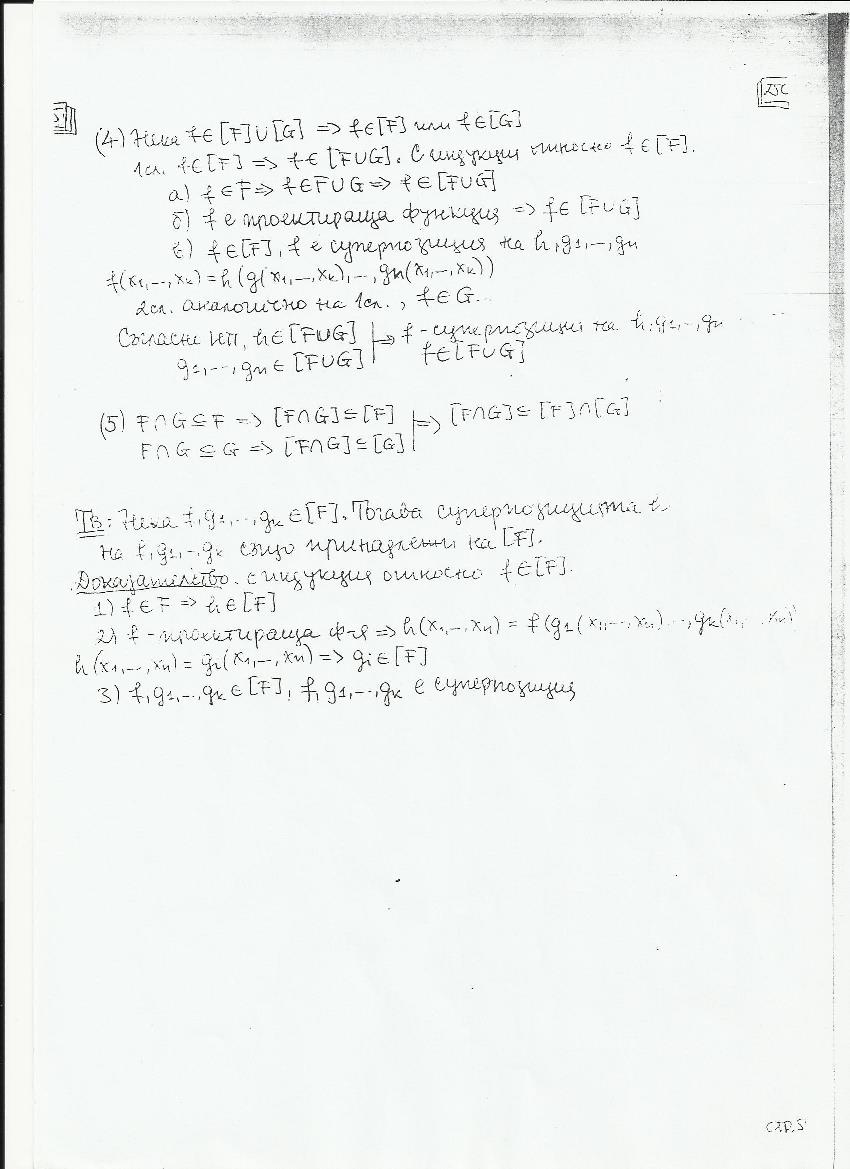 (4) Нека f∈[F]∪[G] => f∈[F] или f∈[G]
1сл. f∈[F] => f∈[F∪G]. С индукция относно f∈[F].
а) f∈F => f∈F∪G => f∈[F∪G]
б) f е проектираща функция => f∈[F∪G]
в) f∈[F], f е суперпозиция на h,g1,..,gn
f(x1,..,xk)=h(g(x1,..,xk),..,gn(x1,..,xk))
2сл. аналогично на 1сл., f∈G.
Съгласно ИП, h∈[F∪G] |=> f-суперпозиция на h,g1,..,gn
g1,..,gn∈[F∪G] f∈[F∪G]
(5) F∩G⊆F => [F∩G]⊆[F] |=> [F∩G]⊆[F]∩[G]
F∩G⊆G => [F∩G]⊆[G]
Тв: Нека f,g1,..,gk∈[F]. Тогава суперпозицията h
на f,g1,..,gk също принадлежи на [F].
Доказателство. с индукция относно f∈[F].
1) f∈F => h∈[F]
2) f-проектираща ф-я => h(x1,..,xn) = f(g1(x1,..,xn)..,gk(x1, xn)
h(x1,..,xn) = gi(x1,..,xn) => gi∈[F]
3) f,g1,..,gk∈[F], f,g1,..,gk е суперпозиция